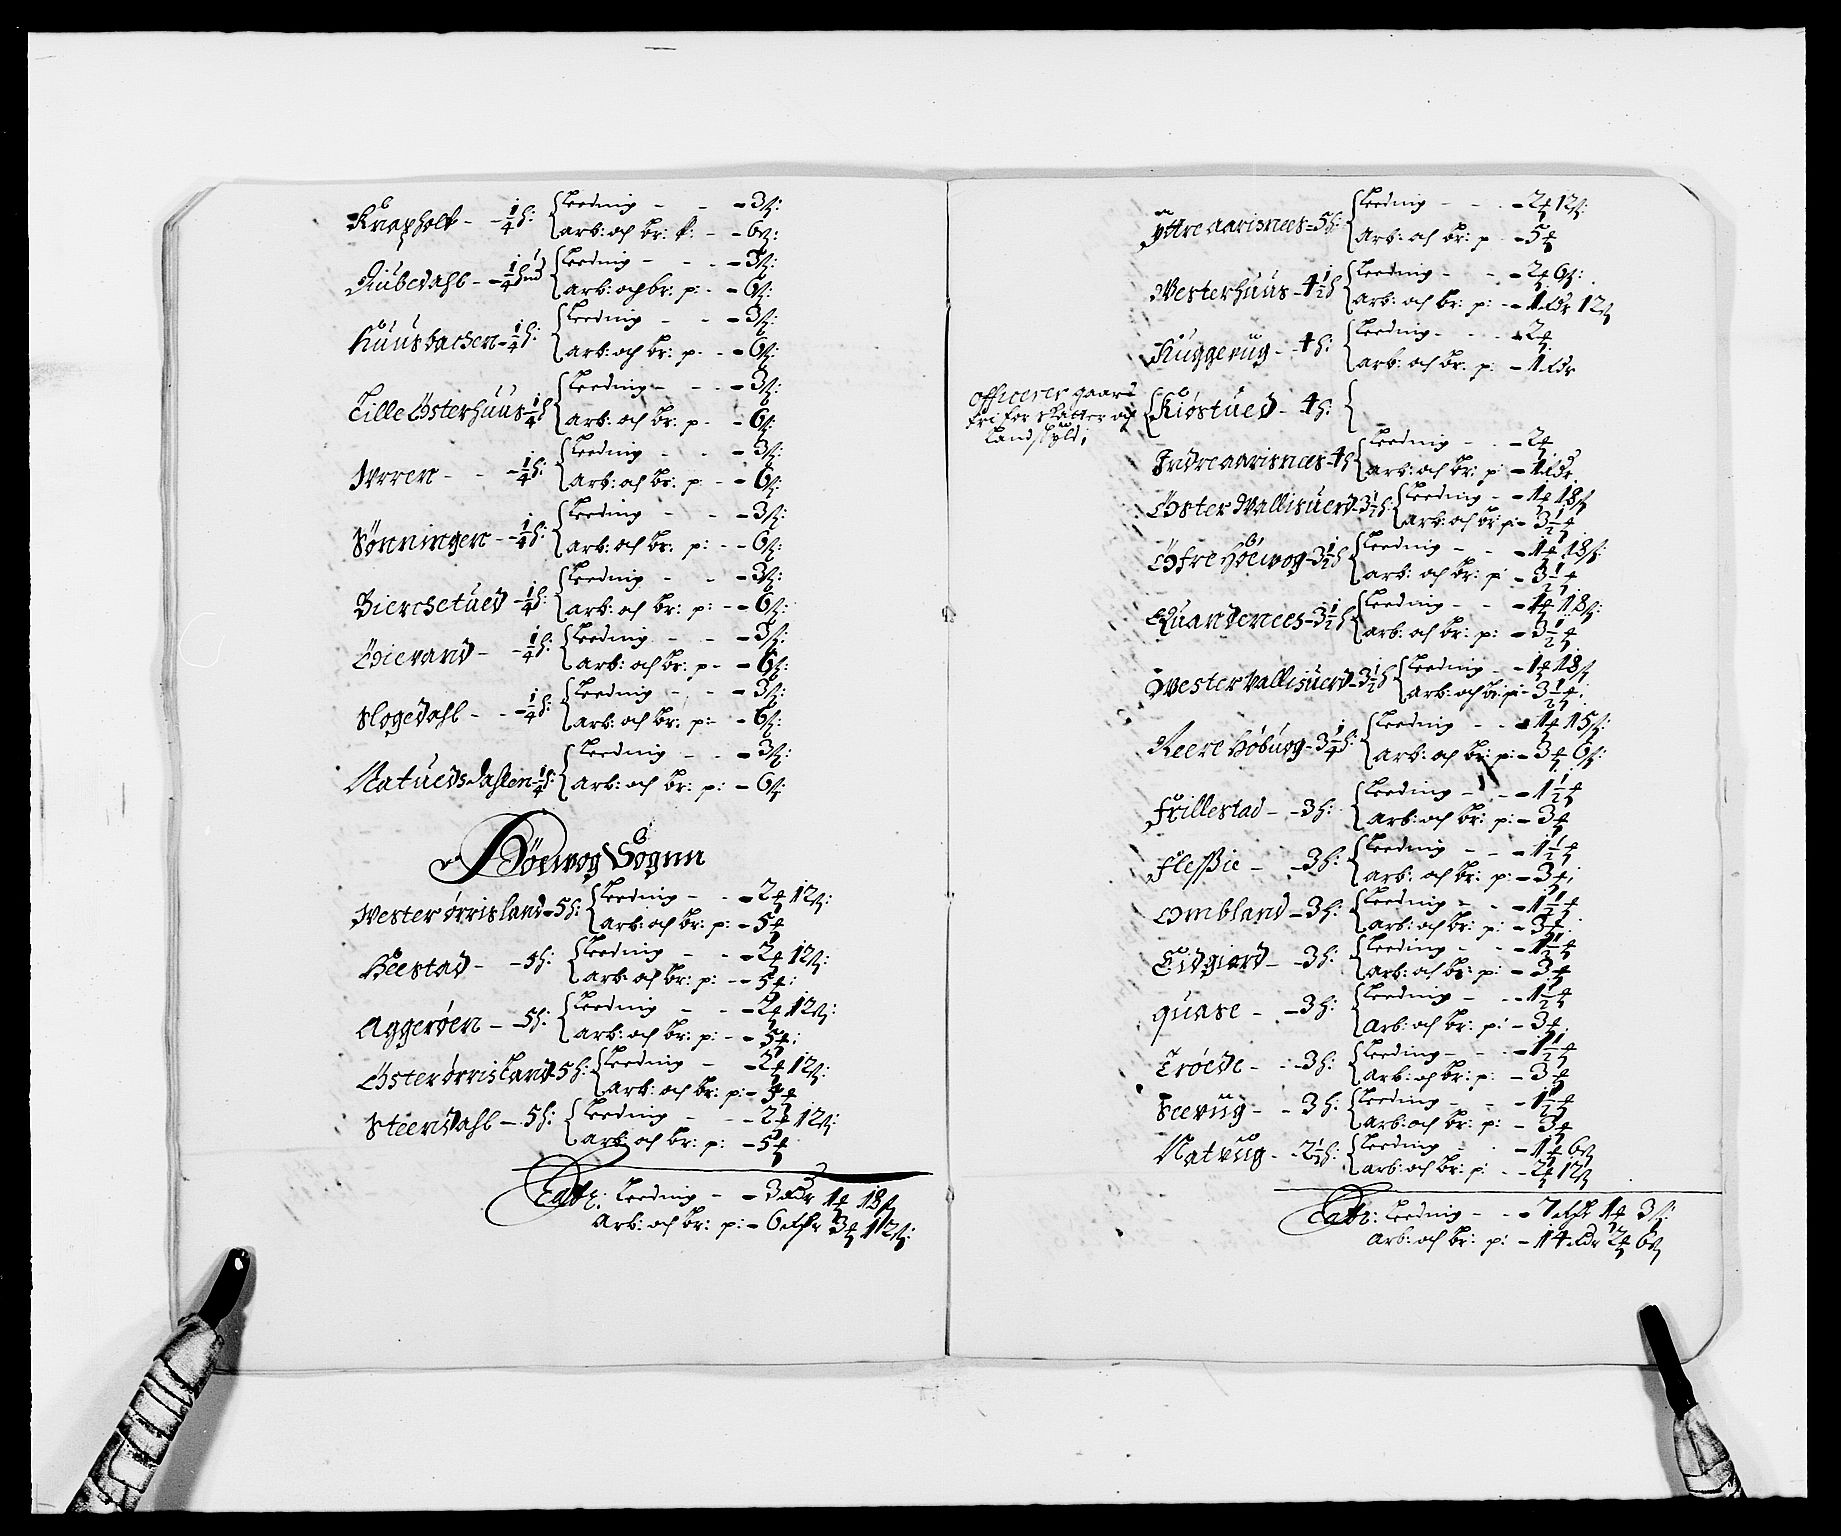 Knapholt - - 1/4 h: Leedning - - - 3 ß:
arb: och br: p: - - 6 ß:
Riubedahl - - 1/4 hud Leedning - - - 3 ß:
arb: och br: p: - - 6 ß:
Huusbachen - 1/4 h: Leedning - - - 3 ß:
arb: och br: p - - 6 ß:
Lille Østerhuus 1/4 h Leedning - - - 3 ß:
arb: och br: p - - 6 ß:
Urren - - - 1/4 h: Leedning - - - 3 ß:
arb: och br: p: - - 6 ß:
Sønningen - - 1/4 h: Leedning - - - 3 ß:
arb: och br: p: - - 6 ß:
Bierchetued - 1/4 h: Leedning - - - 3 ß:
arb: och br: p: - - 6 ß:
Øievand - - 1/4 h: Leedning - - - 3 ß:
arb: och br: p - - 6 ß:
Slogedahl - - - 1/4 h: Leedning - - - 3 ß:
arb: och br: p: - 6 ß:
Natuedsdahlen - 1/4 h: Leedning - - - 3 ß:
arb: och br: p: - 6 ß:
Høwog Sognn
Vester ørrisland - 5 h: Leedning - - - 2 ₰ 12 ß:
arb: och br: p: - 5 ₰
Heestad - - 5 h: Leedning - - - 2 ₰ 12 ß:
arb: och br: p: - - 5 ₰:
Aggerøen - - 5 h: Leedning - - 2 ₰ 12 ß:
arb: och br: p: - - 5 ₰:
Øster ørrisland - 5 h: Leedning - - 2 ₰ 12 ß:
arb: och br: p: - 5 ₰
Steendahl - - 5 h: Leedning - - - 2 ₰ 12 ß:
arb: och br: p: - 5 ₰
Latr: Leedning - - 3 rdr 1 ₰ 18 ß
Arb: och br: p: - 6 rdr 3 ₰ 12 ß:
Yttre aarisnees - 5 h: Leedning - - - 2 ₰ 12 ß:
Arb: och br: p - 5 ₰
Westerhuus - 4 1/2 h Leedning - - - 2 ₰ 6 ß:
arb: och br: p: - 1 rdr 12 ß
Kuggeviig - - 4 h: Leedning - - - 2 ₰
arb: och br: p: - 1 rdr
officerer gaard
fri for skatter och
landskyld;
Kiøstued - 4 h:
Indre aarisnees - 4 h Leedning - - - 2 ₰
arb: och br: p: - 1 rdr
Øster Wallisuerd - 3 1/2 h: Leedning - - 1 ₰ 18 ß
arb: och br: p: - 3 1/2 ₰
Øfre Høewog - 3 1/2 h Leedning - - - 1 ₰ 18 ß:
arb: och br: p - 3 1/2 ₰
Quandenees - 3 1/2 h Leedning - - - 1 ₰ 18 ß:
arb: och br: p: - 3 1/2 ₰
Vester Vallisuerd - 3 1/2 h Leedning - - 1 ₰ 18 ß
arb: och br: p: - 3 1/2 ₰:
Neere Høbuog - 3 1/4 h: Leedning - - - 1 ₰ 15 ß:
arb: och br: p: - 3 ₰ 6 ß:
Frillestad - - 3 h: Leedning - - - 1 1/2 ₰
Arb: och br: p: - 3 ₰
Flessie - - 3 h: Leedning - - - 1 1/2 ₰
Arb: och br: p: - 3 ₰;
Ombland - 3 h: Leedning - - - 1 1/2 ₰
arb: och br: p: - 3 ₰:
Eidgierd - - 3 h: Leedning - - - 1 1/2 ₰
arb: och br: p: - 3 ₰
quase - - 3 h: Leedning - - - 1 1/2 ₰
arb: och br: p: - 3 ₰:
Trøede - - 3 h: Leedning - - - 1 1/2 ₰
arb: och br: p: - 3 ₰
Seeviig - - 3 h: Leedning - - - 1 1/2 ₰
arb: och br: p: - 3 ₰
Natviig - - 2 1/2 h: Leedning - - - 1 ₰ 6 ß
arb: och br: p: - - 2 ₰ 12 ß
Latr: Leedning - - - 7 rdr 1 ₰ 3 ß:
arb: och br: p: - 14 rdr 2 ₰ 6 ß